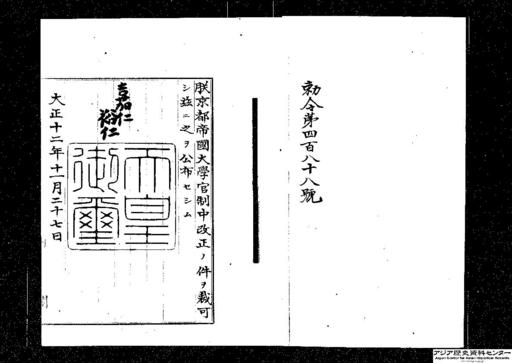 勅令第四百八十八號
朕京都帝國大學官制中改正ノ件ヲ裁可
シ茲ニ之ヲ公布セシム
嘉仁
裕仁
天皇
御璽
大正十二年十一月二十七日
アジア歴史資料センター
Japan Center for Asian Historical Records